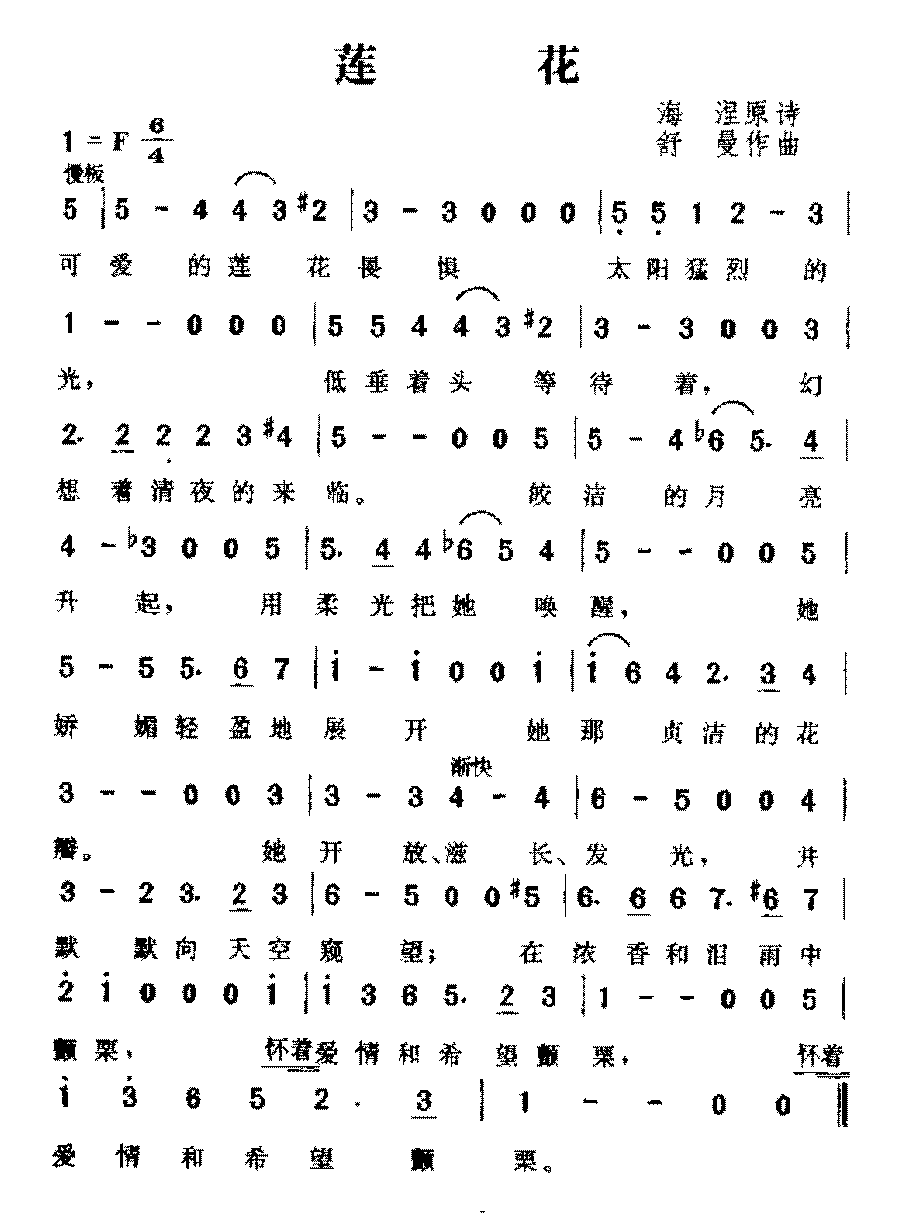 莲 花
海 涅原诗
1 = F 6/4 舒 曼作曲
慢板
5 | 5 - 4 4 3 #2 | 3 - 3 0 0 0 | 5 5 1 2 - 3 |
可 爱 的 莲 花 畏 惧 太 阳 猛 烈 的
1 - - 0 0 0 | 5 5 4 4 3 #2 | 3 - 3 0 0 3 |
光, 低 垂 着 头 等 待 着, 幻
2. 2 2 2 3 #4 | 5 - - 0 0 5 | 5 - 4 b6 5. 4 |
想 着 清 夜 的 来 临。 皎 洁 的 月 亮
4 - b3 0 0 5 | 5. 4 4 b6 5 4 | 5 - - 0 0 5 |
升 起, 用 柔 光 把 她 唤 醒, 她
5 - 5 5. 6 7 | i - i 0 0 i | i 6 4 2. 3 4 |
娇 媚 轻 盈 地 展 开 她 那 贞 洁 的 花
渐快
3 - - 0 0 3 | 3 - 3 4 - 4 | 6 - 5 0 0 4 |
瓣。 她 开 放、滋 长、发 光, 并
3 - 2 3. 2 3 | 6 - 5 0 0 #5 | 6. 6 6 7. #6 7 |
默 默 向 天 空 窥 望; 在 浓 香 和 泪 雨 中
2 i 0 0 0 i | i 3 6 5. 2 3 | 1 - - 0 0 5 |
颤 栗, 怀着 爱 情 和 希 望 颤 栗, 怀着
i 3 6 5 2 . 3 | 1 - - 0 0 ‖
爱 情 和 希 望 颤 栗。